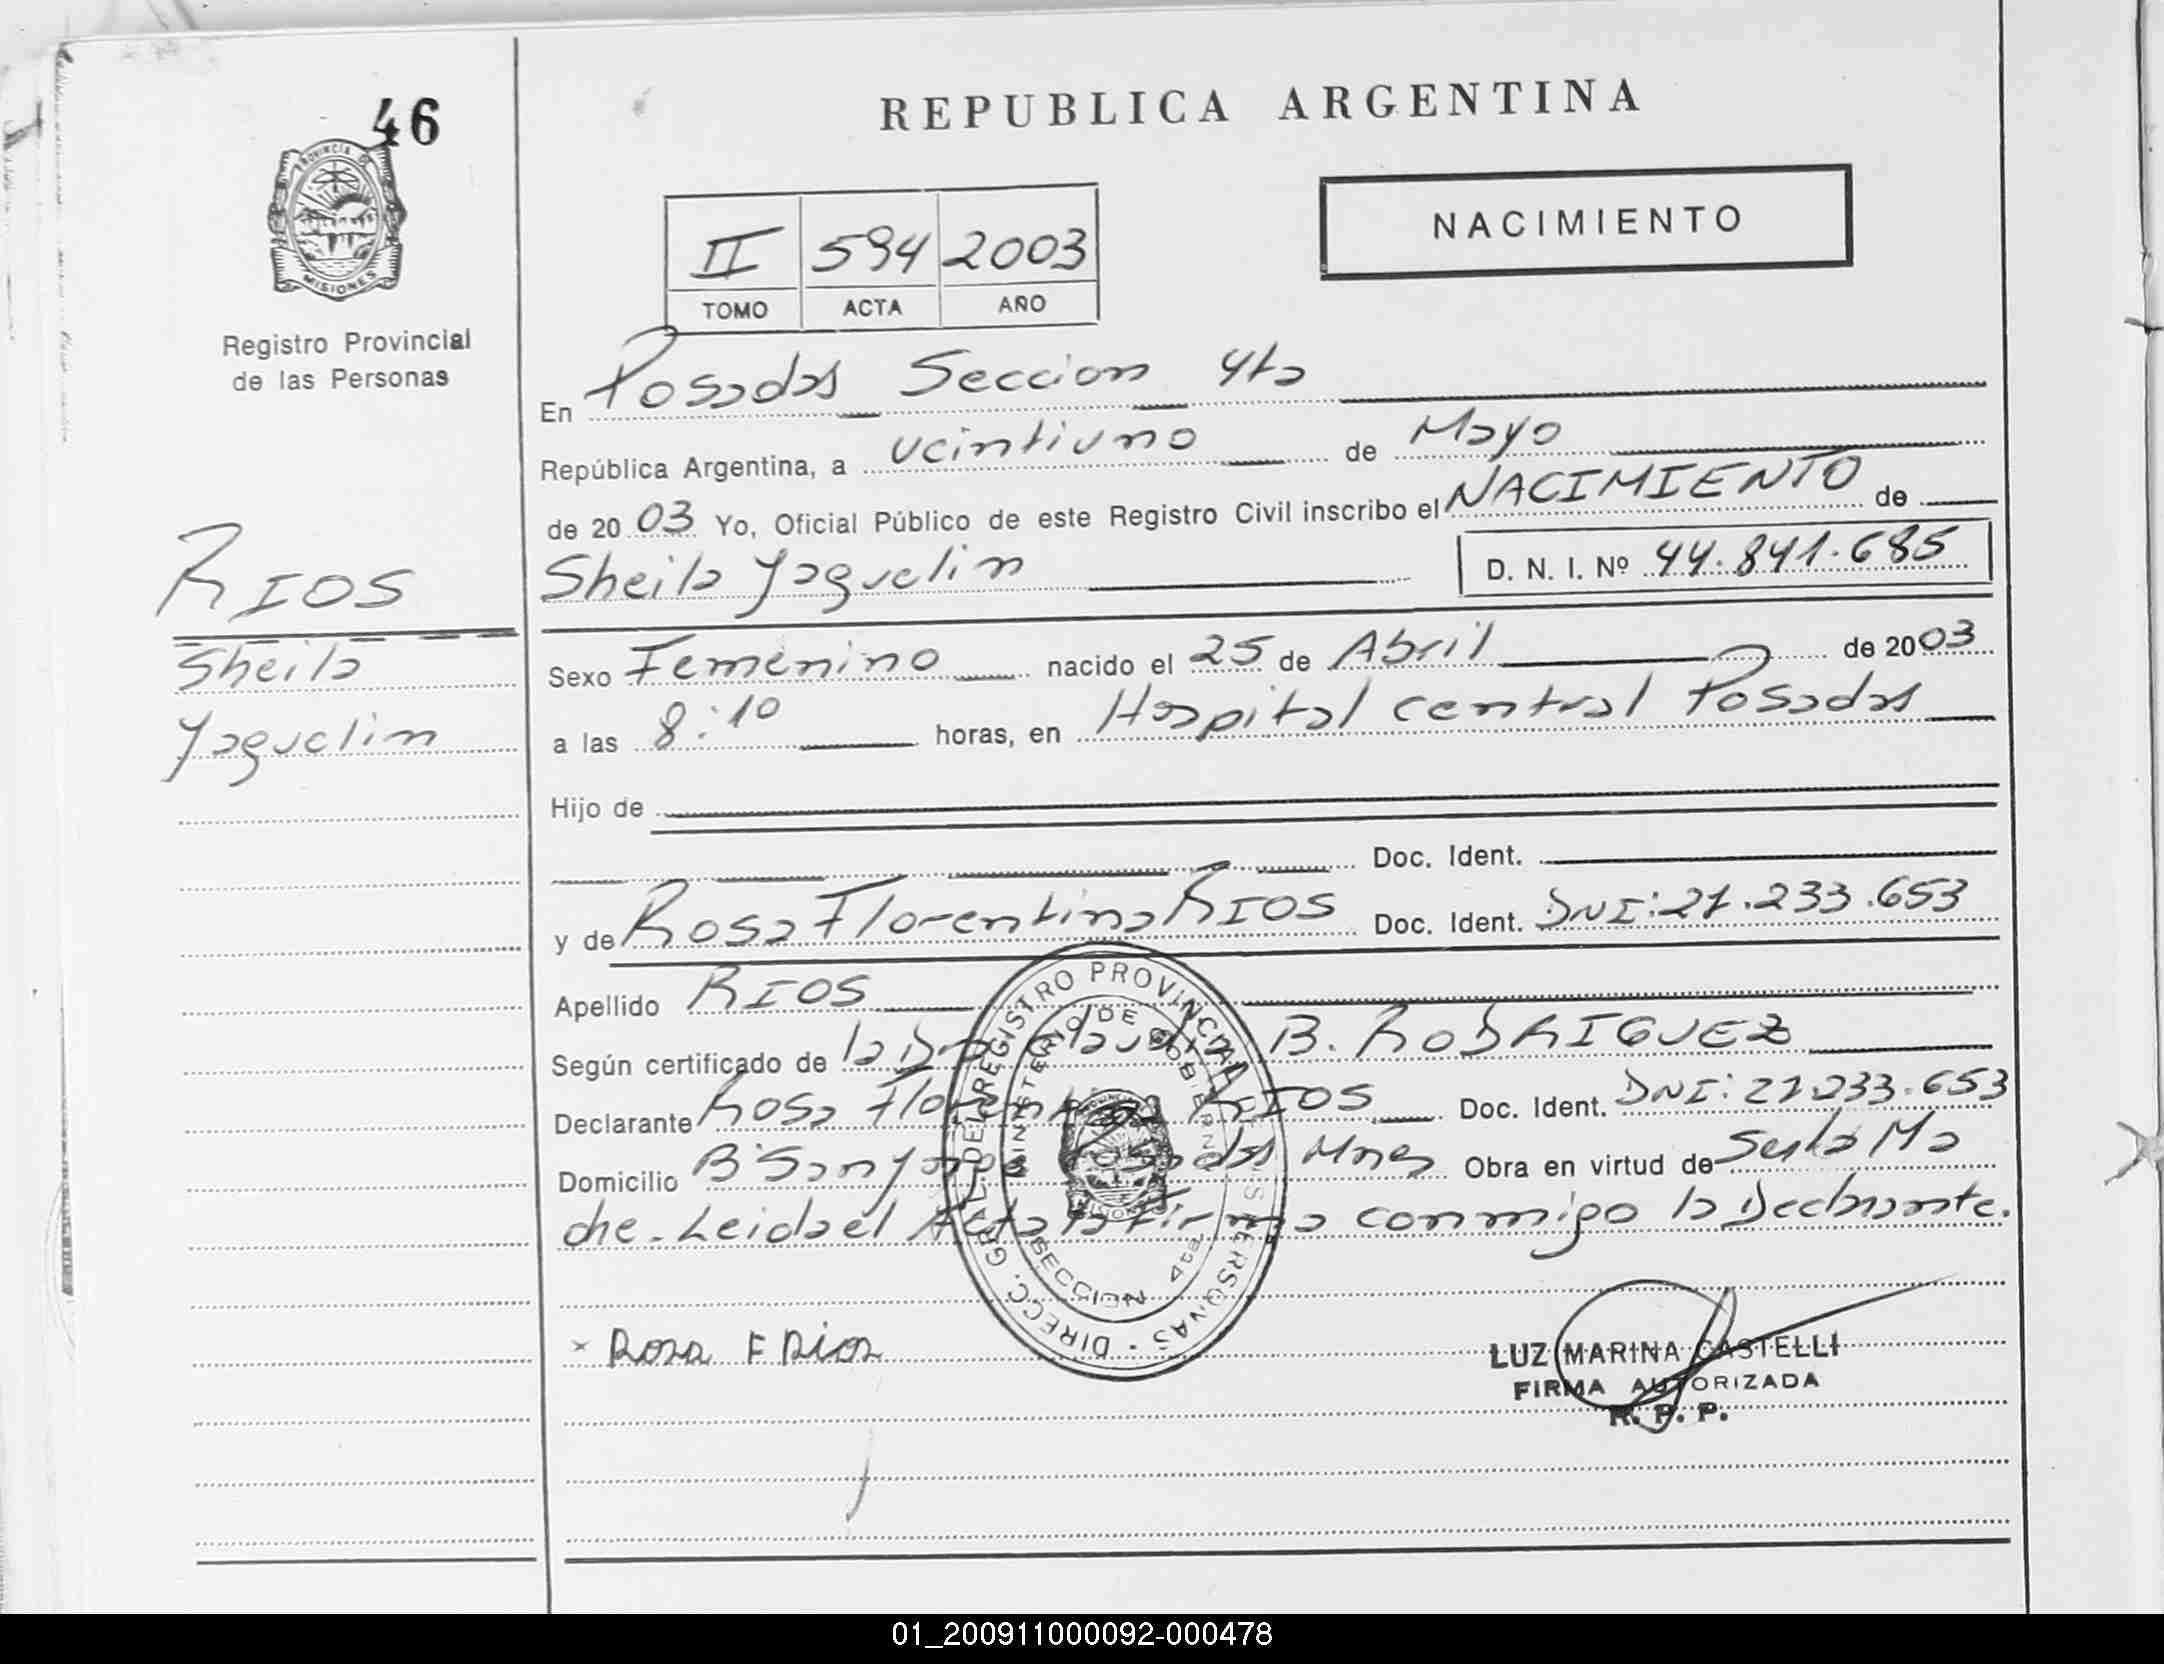 46
PROVINCIA DE
MISIONES
Registro Provincial
de las Personas
RIOS
Sheila
Yaquelin
REPUBLICA ARGENTINA
II 594 2003
TOMO ACTA AÑO
NACIMIENTO
En Posadas Seccion 4ta
República Argentina, a veintiuno de Mayo
de 2003 Yo, Oficial Público de este Registro Civil inscribo el NACIMIENTO de
Sheila Yaquelin D. N. I. Nº 44.841.685
Sexo Femenino nacido el 25 de Abril de 2003
a las 8:10 horas, en Hospital central Posadas
Hijo de
Doc. Ident.
y de Rosa Florentina RIOS Doc. Ident. DNI: 21.233.653
Apellido RIOS
Según certificado de la Dra Claudia B. RODRIGUEZ
Declarante Rosa Florentina RIOS Doc. Ident. DNI: 21.233.653
Domicilio B° San Posadas Mnes Obra en virtud de Ser la Ma
dre. Leida el Acta la Firma conmigo la Declarante.
DIRECC. GRAL. DEL REGISTRO PROVINCIAL DE LAS PERSONAS
MINISTERIO DE GOBIERNO
SECCION 4ta
x Rosa F Rios
LUZ MARINA CASTELLI
FIRMA AUTORIZADA
R. P. P.
01_200911000092-000478